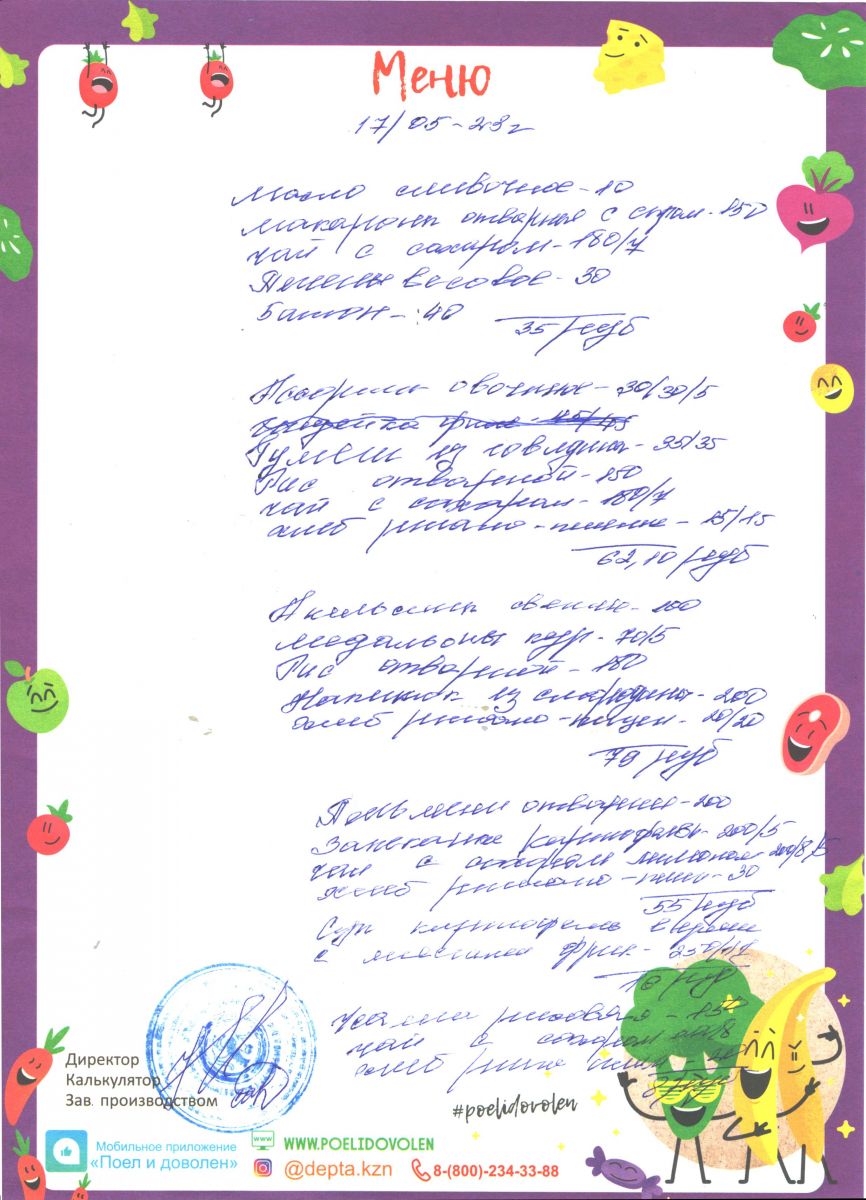 Меню
17/05-23г
Масло сливочное-10
Макароны отварные с сыром-150
чай с сахаром-180/7
Печенье весовое-30
Батон-40
35 руб
овощные-30/30/5
Гуляш из говядины-35/35
Рис отварной-150
чай с сахаром-180/7
хлеб ржано-пшенич-15/15
62,10 руб
Апельсины свежие-100
медальоны кур-70/5
Рис отварной-150
Напиток из смородины-200
хлеб ржано-пшен-20/20
79 руб
Пельмени отварные-200
Запеканка картофель-200/5
чай с сахаром лимоном 200/8/5
хлеб ржано-пшен-30
55 руб
Суп картофель с
с мясными фрик-
руб
Каша рисовая-150
чай с сахаром
хлеб ржано
руб
Директор
Калькулятор
Зав. производством
#poelidovolen
Мобильное приложение
«Поел и доволен»
www
WWW.POELIDOVOLEN
@depta.kzn
8-(800)-234-33-88